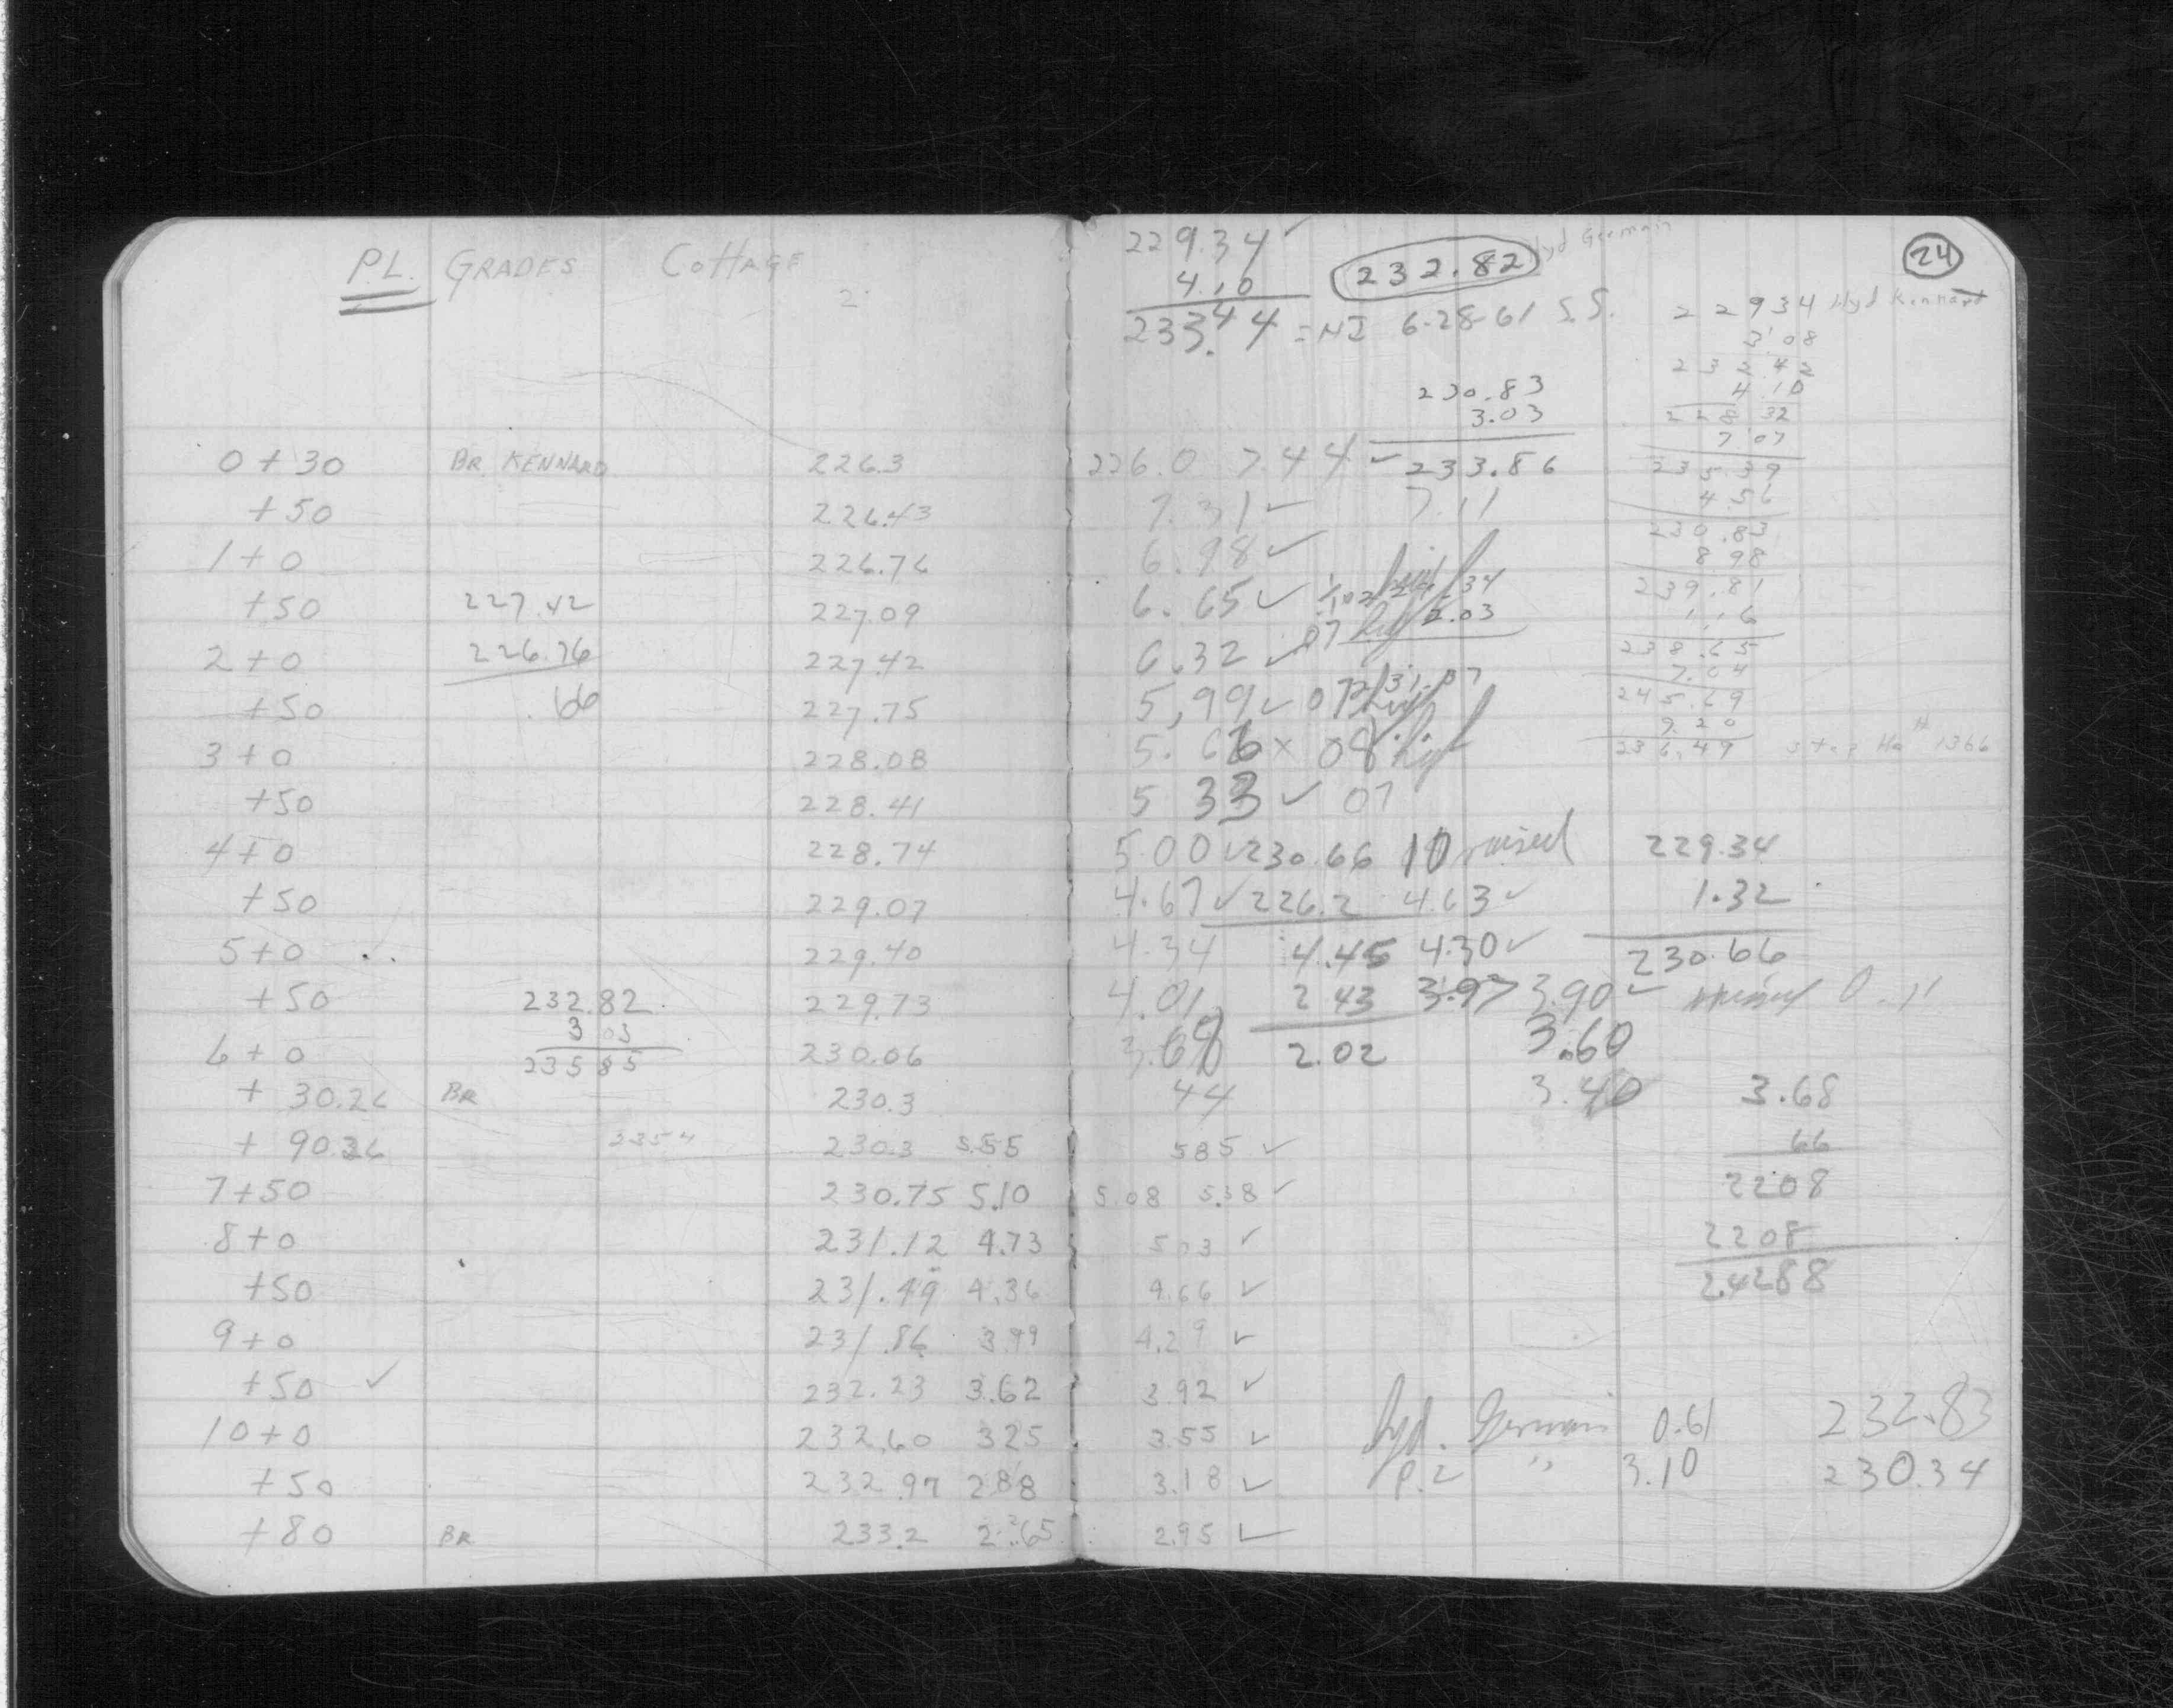 P.L. GRADES COTTAGE
0+30 BR. KENNARD 226.3
+50 226.43
1+0 226.76
+50 227.42 227.09
2+0 226.76 227.42
+50 .66 227.75
3+0 228.08
+50 228.41
4+0 228.74
+50 229.07
5+0 229.40
+50 232.82 229.73
3 03
6+0 235 85 230.06
+ 30.26 BR 230.3
+ 90.26 235 4 230.3 5.55
7+50 230.75 5.10
8+0 231.12 4.73
+50 231.49 4.36
9+0 231.86 3.99
+50 ✓ 232.23 3.62
10+0 232.60 325
+50 232.97 288
+80 BR 233.2 2.65
24
229.34 ✓
4.10
233.44 = HI 6-28-61 S.S.
232.82 Hyd Germain
229 34 Hyd Kennard
3.08
232 42
4.10
228 32
7 07
235.39
4.56
230.83
8.98
239.81
1.16
238.65
7.04
245.69
9 20
236.49 # 1366
230.83
3.03
226.0 7.44 ✓ 233.86
7.31 ✓ 7.11
6.98 ✓
6.65 ✓
6.32 ✓ 07
5,99 ✓ 07
5.66 × 08 high
5 33 ✓ 07
5.00 ✓ 230.66 10 raised
4.67 ✓ 226.2 4.63 ✓
4.34 4.45 4.30 ✓
4.01 2 43 3.97 3.90 ✓ 0.11
3.68 2.02 3.60
44 3.40
229.34
1.32
230.66
585 ✓
5.08 5.38 ✓
503 ✓
4.66 ✓
4.29 ✓
3.92 ✓
3.55 ✓
3.18 ✓
2.95 ✓
3.68
66
2208
2208
2.4288
Hyd. Germain 0.61 232.83
P.L. " 3.10 230.34